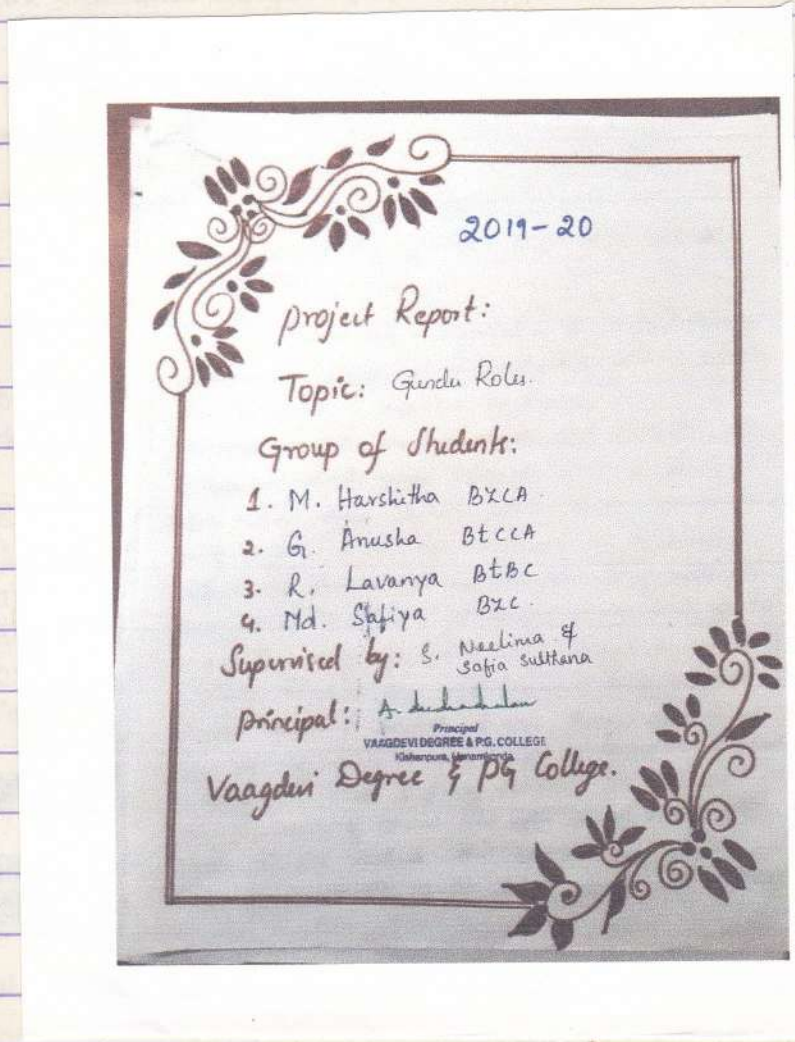 2019-20
Project Report:
Topic: Gender Roles.
Group of Students:
1. M. Harshitha BZCA
2. G. Anusha BtCCA
3. R. Lavanya BtBC
4. Md. Safiya BZC.
Supervised by: S. Neelima &
Sofia Sulthana
Principal:
Principal
VAAGDEVI DEGREE & P.G. COLLEGE
Kishanpura, Hanamkonda
Vaagdevi Degree & PG College.